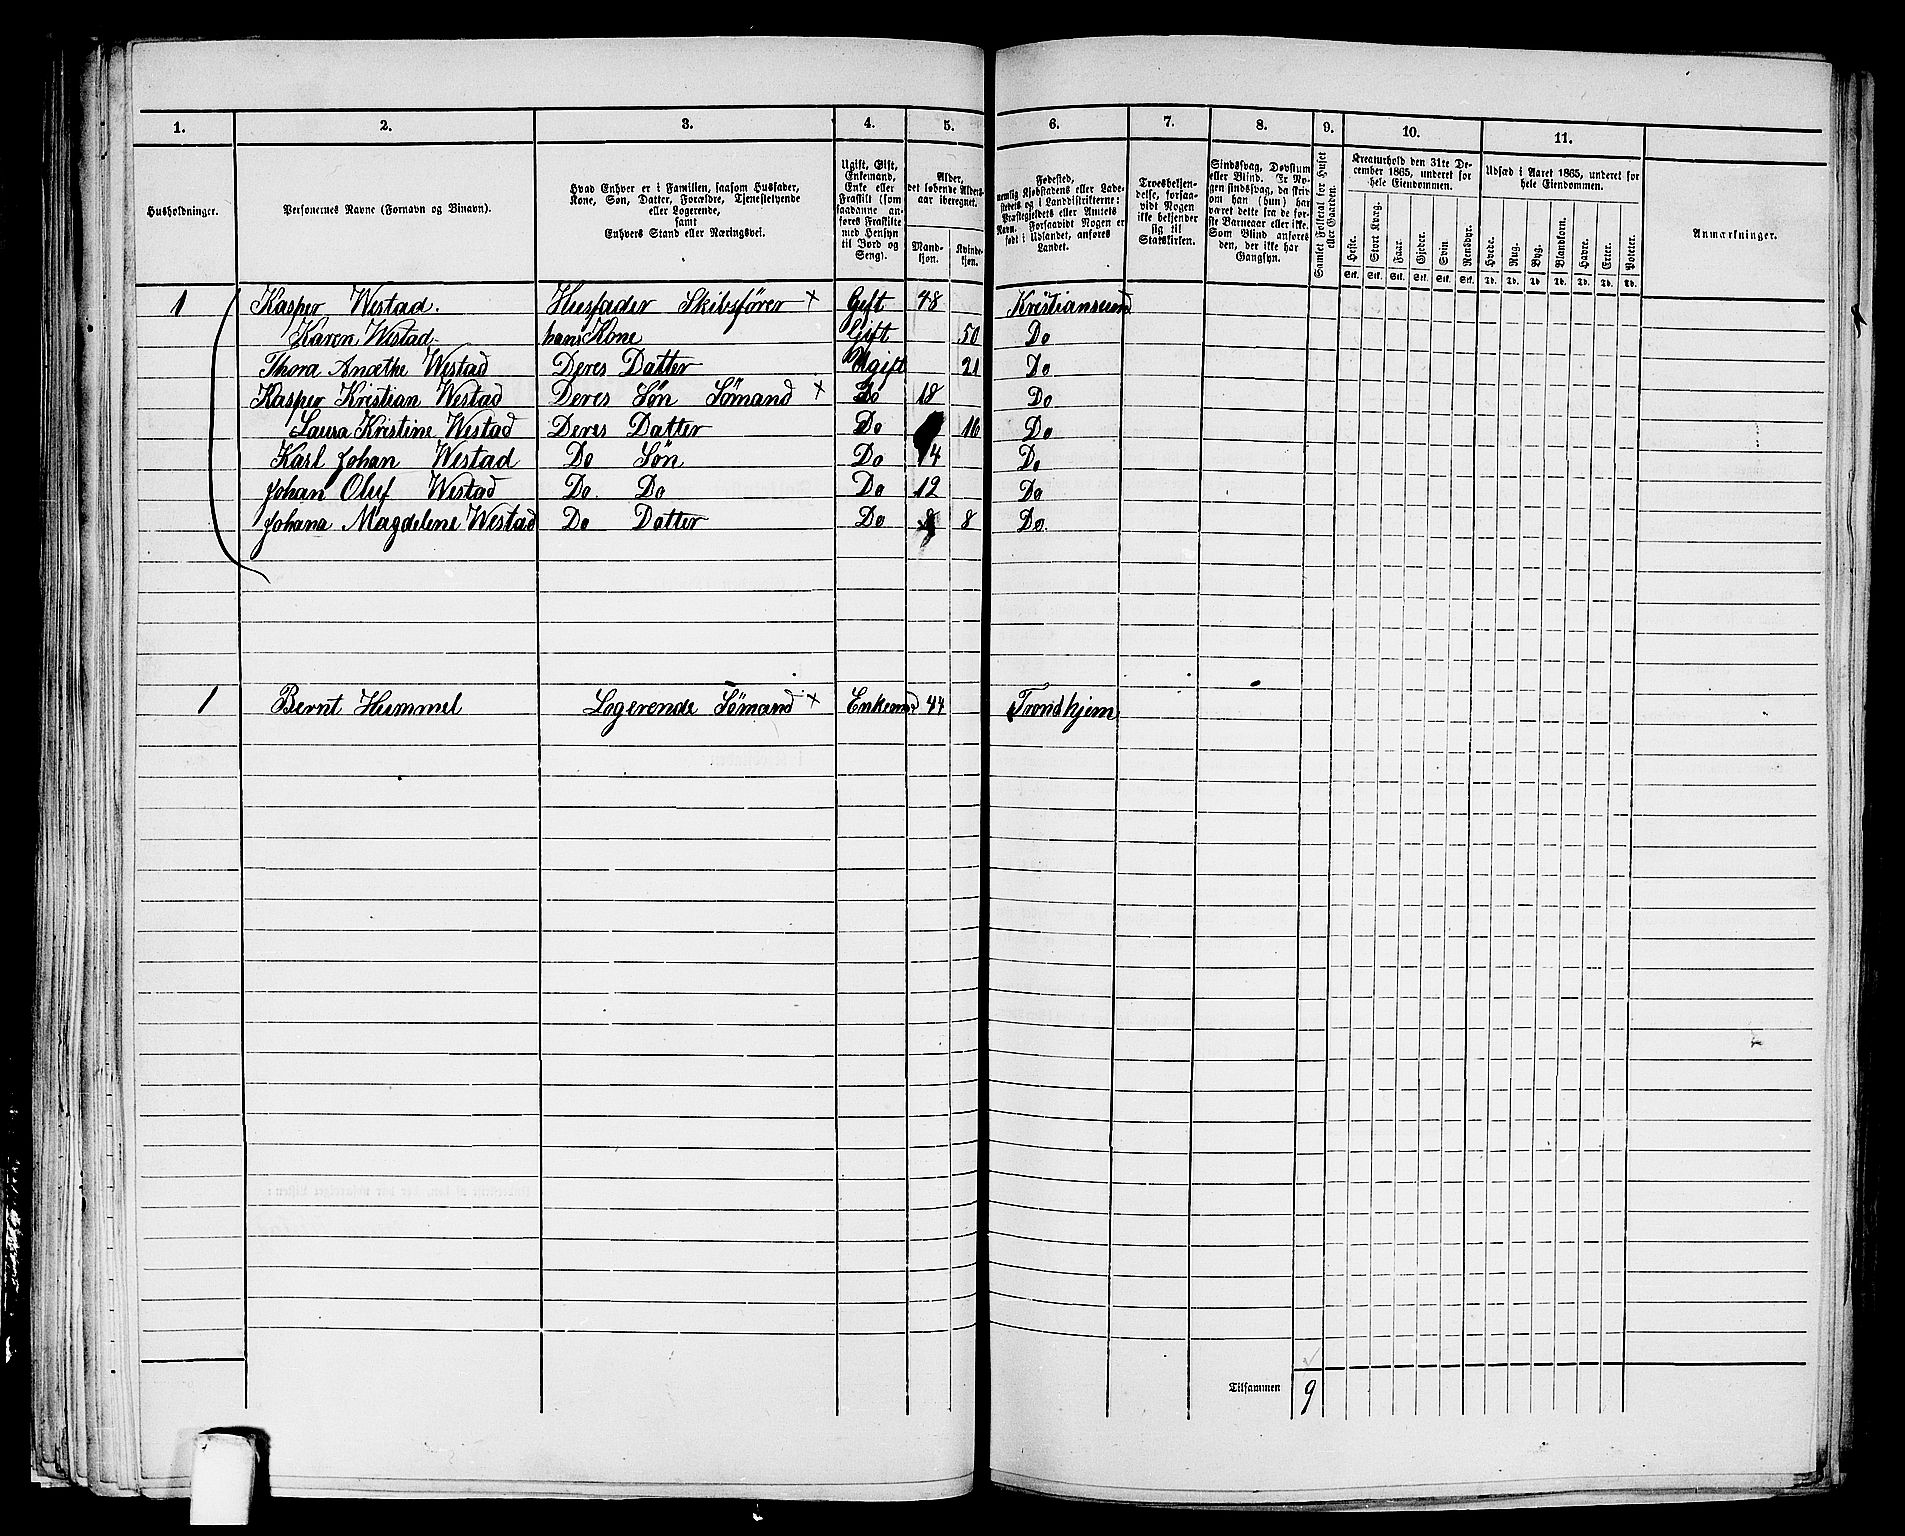 1. 2. 3. 4. 5. 6. 7. 8. 9. 10. 11.
Husholdninger.
Personernes Navne (Fornavn og Binavn).
Hvad Enhver er i Familien, saasom Husfader,
Kone, Søn, Datter, Forældre, Tjenestetyende
eller Logerende,
samt
Enhvers Stand eller Næringsvei.
Ugift, Gift,
Enkemand,
Enke eller
Fraskilt (som
saadanne an-
føres Fraskilte
med Hensyn
til Bord og
Seng).
Alder,
det løbende Alders-
aar iberegnet.
Mand-
kjøn.
Kvinde-
kjøn.
Fødested,
nemlig Kjøbstadens eller Lade-
stedets og i Landdistrikterne:
Præstegjeldets eller Amtets
Navn. Forsaavidt Nogen er
født i Udlandet, anføres
Landet.
Troesbekjen-
delse, forsaa-
vidt Nogen
ikke bekjender
sig til
Statskirken.
Sindssvag, Døvstum
eller Blind. Er No-
gen sindssvag, da skriv
om han (hun) har
været dette fra de før-
ste Barneaar eller ikke.
Som Blind anføres
den, der ikke har
Gangsyn.
Samlet Folketal for Huset
eller Gaarden.
Kreaturhold den 31te De-
cember 1865, underet for
hele Eiendommen.
Heste. Stort Kvæg. Faar. Gjeder. Svin Rensdyr.
Stk. Stk. Stk. Stk. Stk. Stk.
Udsæd i Aaret 1865, underet for
hele Eiendommen.
Hvede. Rug. Byg. Blandkorn. Havre. Erter. Poteter.
Td. Td. Td. Td. Td. Td. Td.
Anmærkninger.
1 Kasper Westad. Husfader Skibsfører × Gift 48 Kristiansund
Karen Westad hans Kone Gift 50 Do
Thora Anæthe Westad Deres Datter Ugift 21 Do
Kasper Kristian Westad Deres Søn Sømand × Do 18 Do
Laura Kristine Westad Deres Datter Do 16 Do
Karl Johan Westad Do Søn Do 14 Do
Johan Oluf Westad Do. Do Do 12 Do
Johana Magdelene Westad Do Datter Do 8 8 Do.
1 Bernt Hummel Logerende Sømand × Enkemd 44 Trondhjem
Tilsammen 9